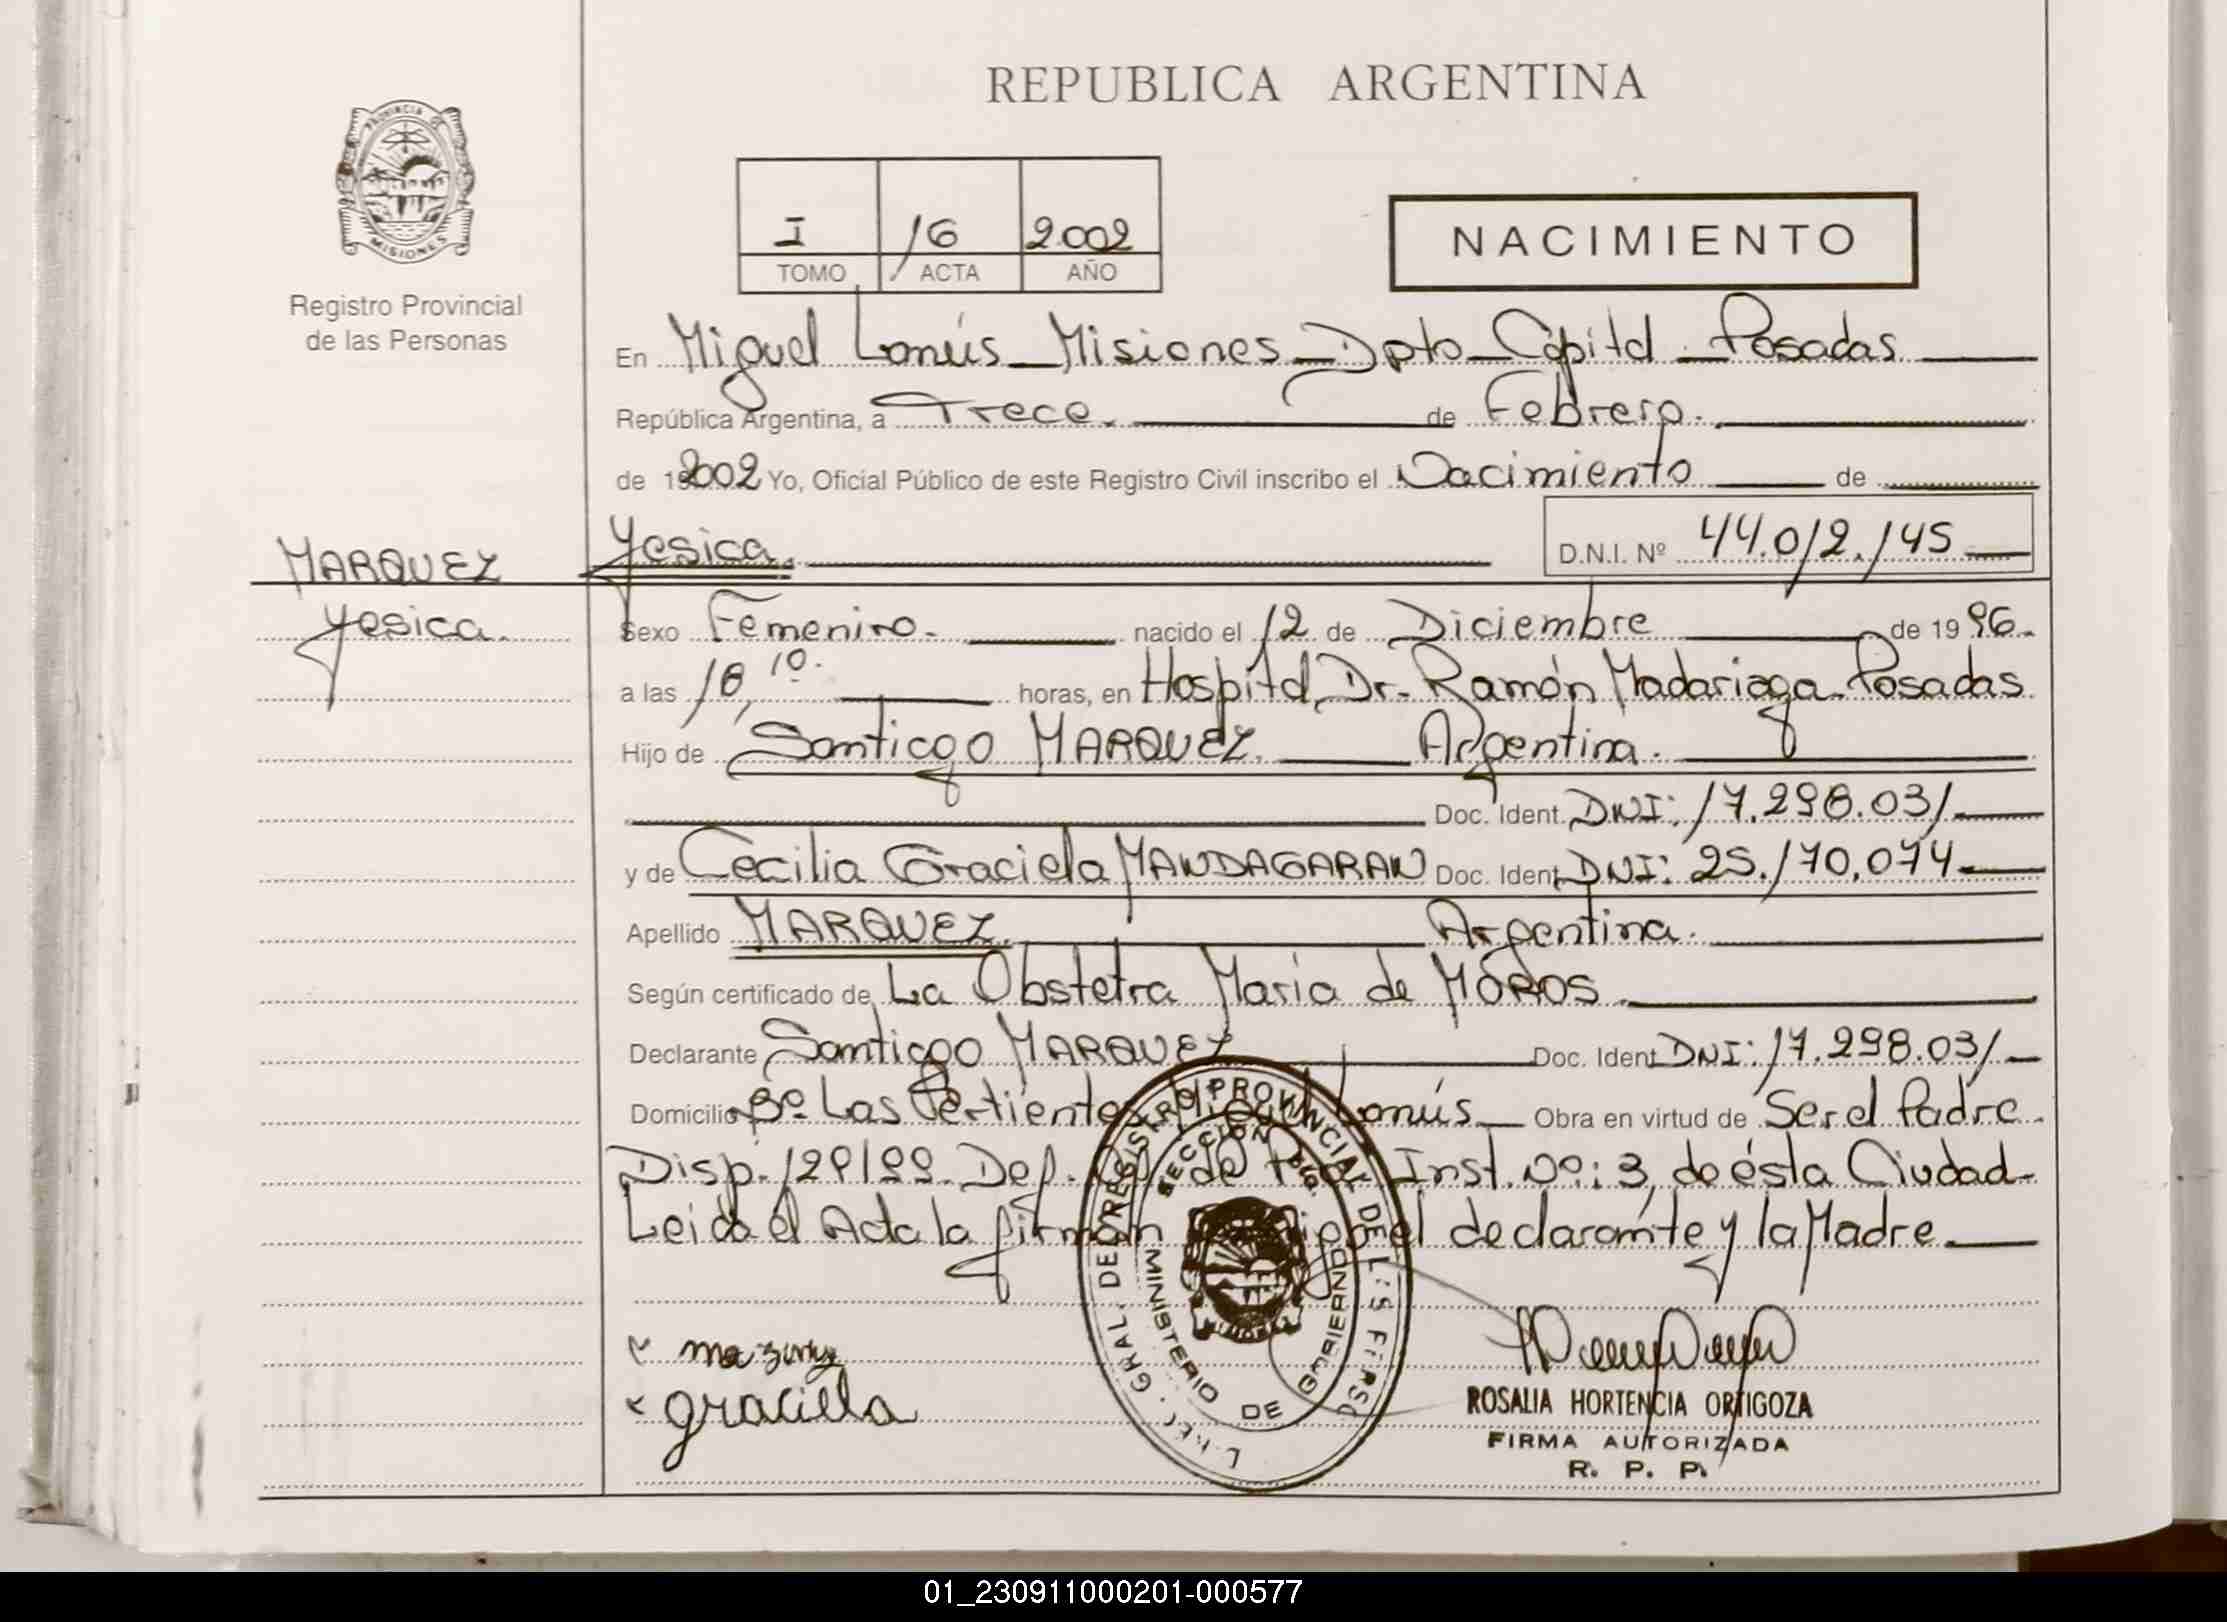 REPUBLICA ARGENTINA
PROVINCIA DE
MISIONES
Registro Provincial
de las Personas
I 16 2002
TOMO ACTA AÑO
NACIMIENTO
En Miguel Lanús - Misiones - Dpto Capital - Posadas
República Argentina, a Trece. de Febrero.
de 2002 Yo, Oficial Público de este Registro Civil inscribo el Nacimiento de
MARQUEZ Yesica. D.N.I. Nº 44.012.145
Yesica. Sexo Femenino. nacido el 12 de Diciembre de 19 96.
a las 18,10. horas, en Hospital Dr. Ramón Madariaga - Posadas
Hijo de Santiago MARQUEZ. Argentina.
Doc. Ident. DNI: 17.298.031
y de Cecilia Graciela MANDAGARAN Doc. Ident. DNI: 25.170.074
Apellido MARQUEZ. Argentina.
Según certificado de La Obstetra Maria de MOROS.
Declarante Santiago MARQUEZ Doc. Ident. DNI: 17.298.031
Domicilio Bº Las Vertientes Miguel Lanús Obra en virtud de Ser el Padre.
Disp. 129/99. Def. de Inst. Nº: 3, de ésta Ciudad-
Leida el Acta la firman el declarante y la Madre
graciela
REGISTRO PROVINCIAL DE
SECCION
MINISTERIO DE GOBIERNO
ROSALIA HORTENCIA ORTIGOZA
FIRMA AUTORIZADA
R. P. P.
01_230911000201-000577